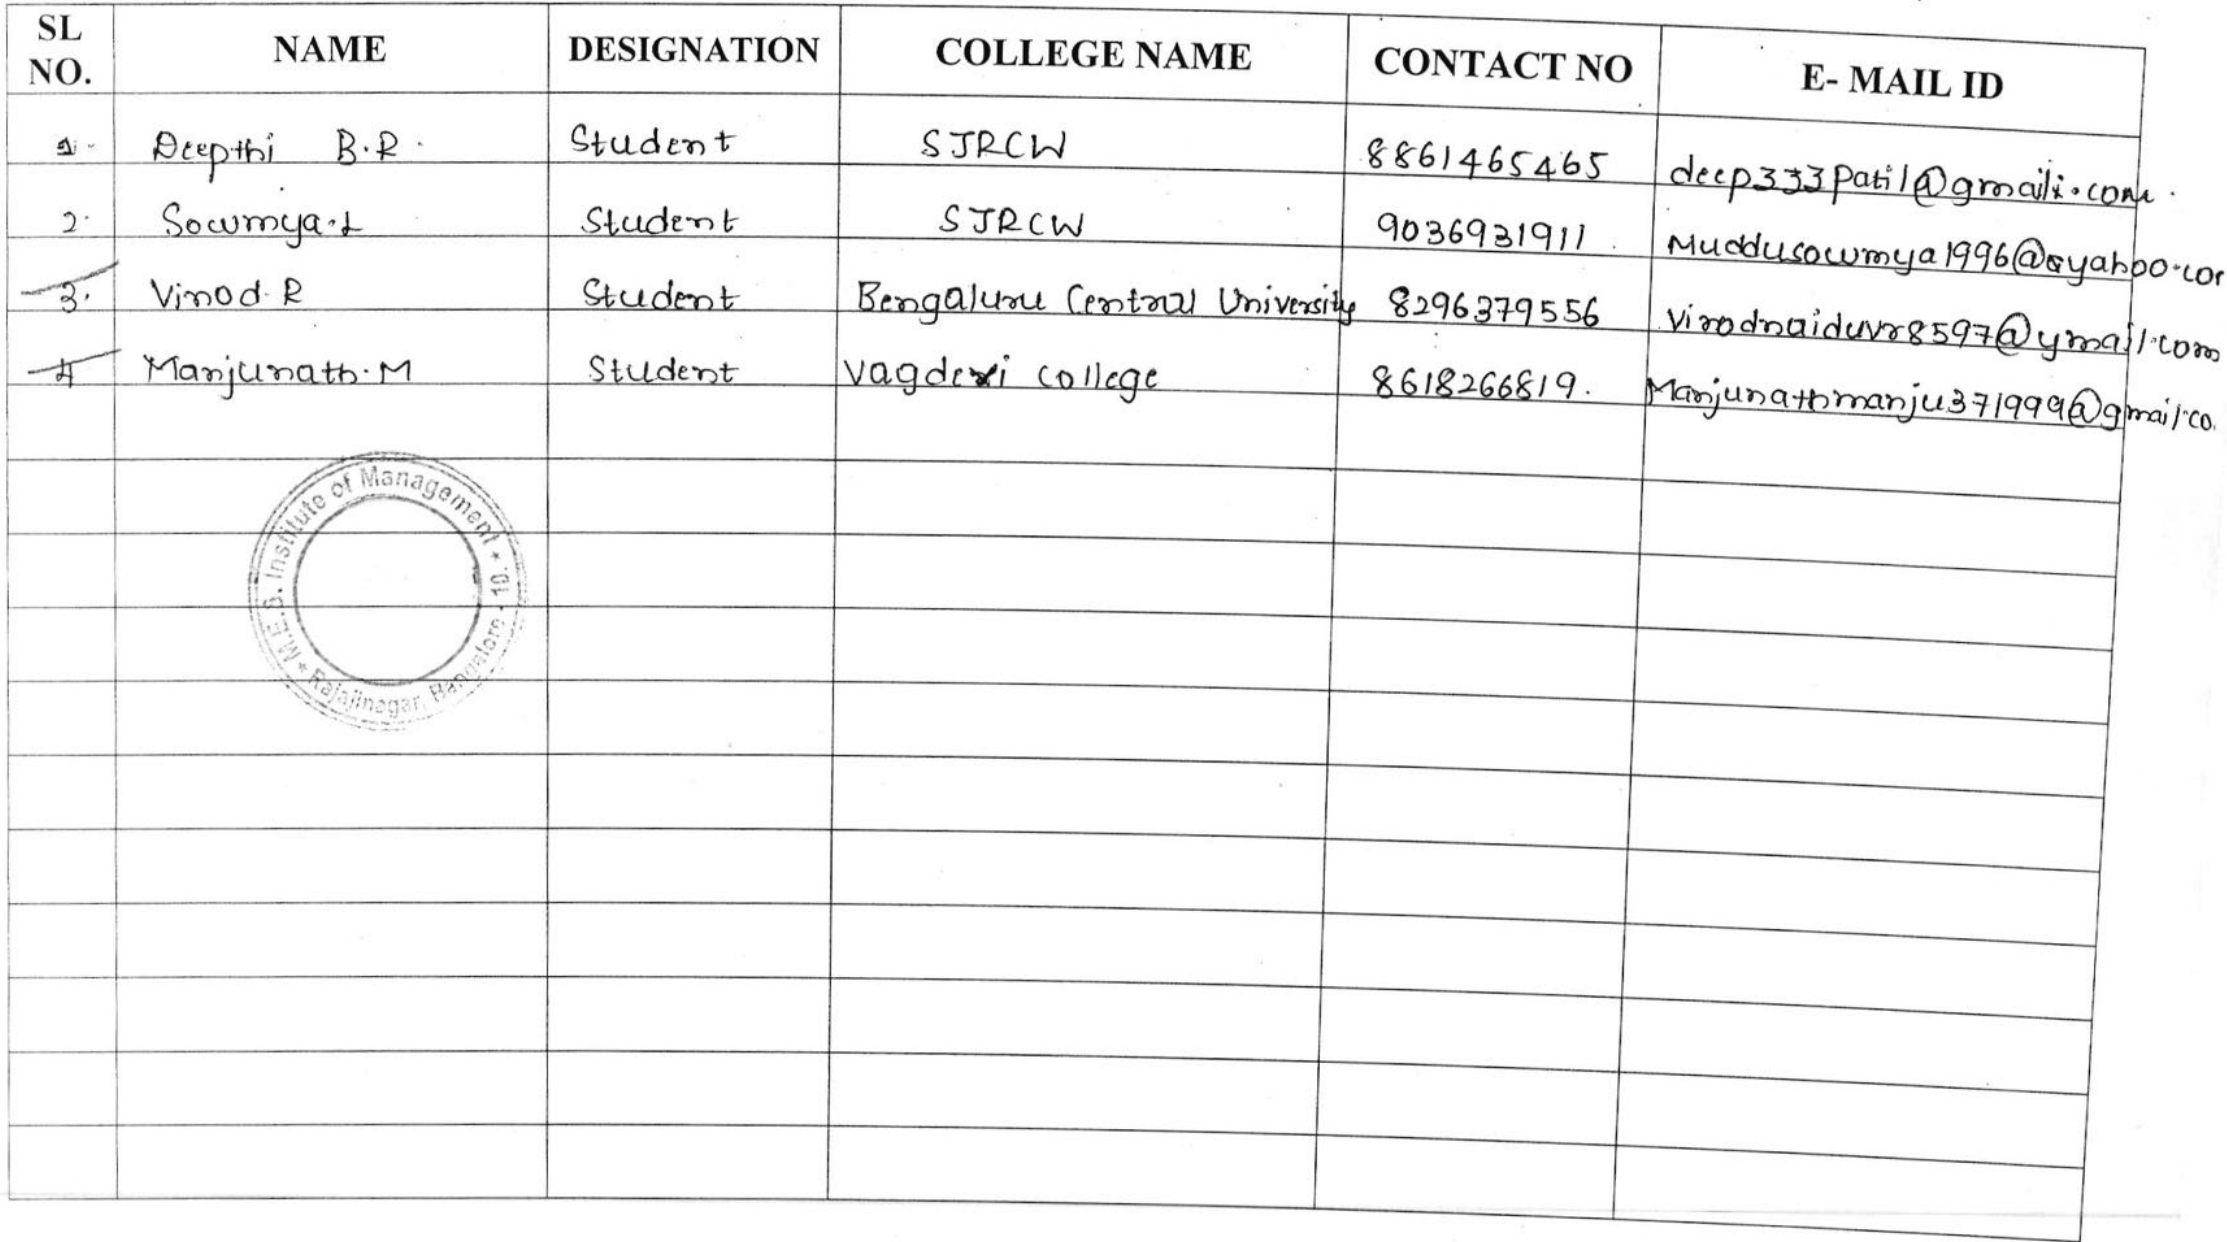 SL NO. NAME DESIGNATION COLLEGE NAME CONTACT NO E- MAIL ID
1. Deepthi B.R. Student SJRCW 8861465465 deep333patil@gmail.com.
2. Sowmya.L Student SJRCW 9036931911. Muddusowmya1996@yahoo.co
3. Vinod.R Student Bengaluru Central University 8296379556 Vinodnaiduvr8597@ymail.com
4 Manjunath.M Student Vagdevi college 8618266819. Manjunathmanju371999@gmail.co.
M.E.S. Institute of Management * Rajajinagar, Bangalore - 10. *